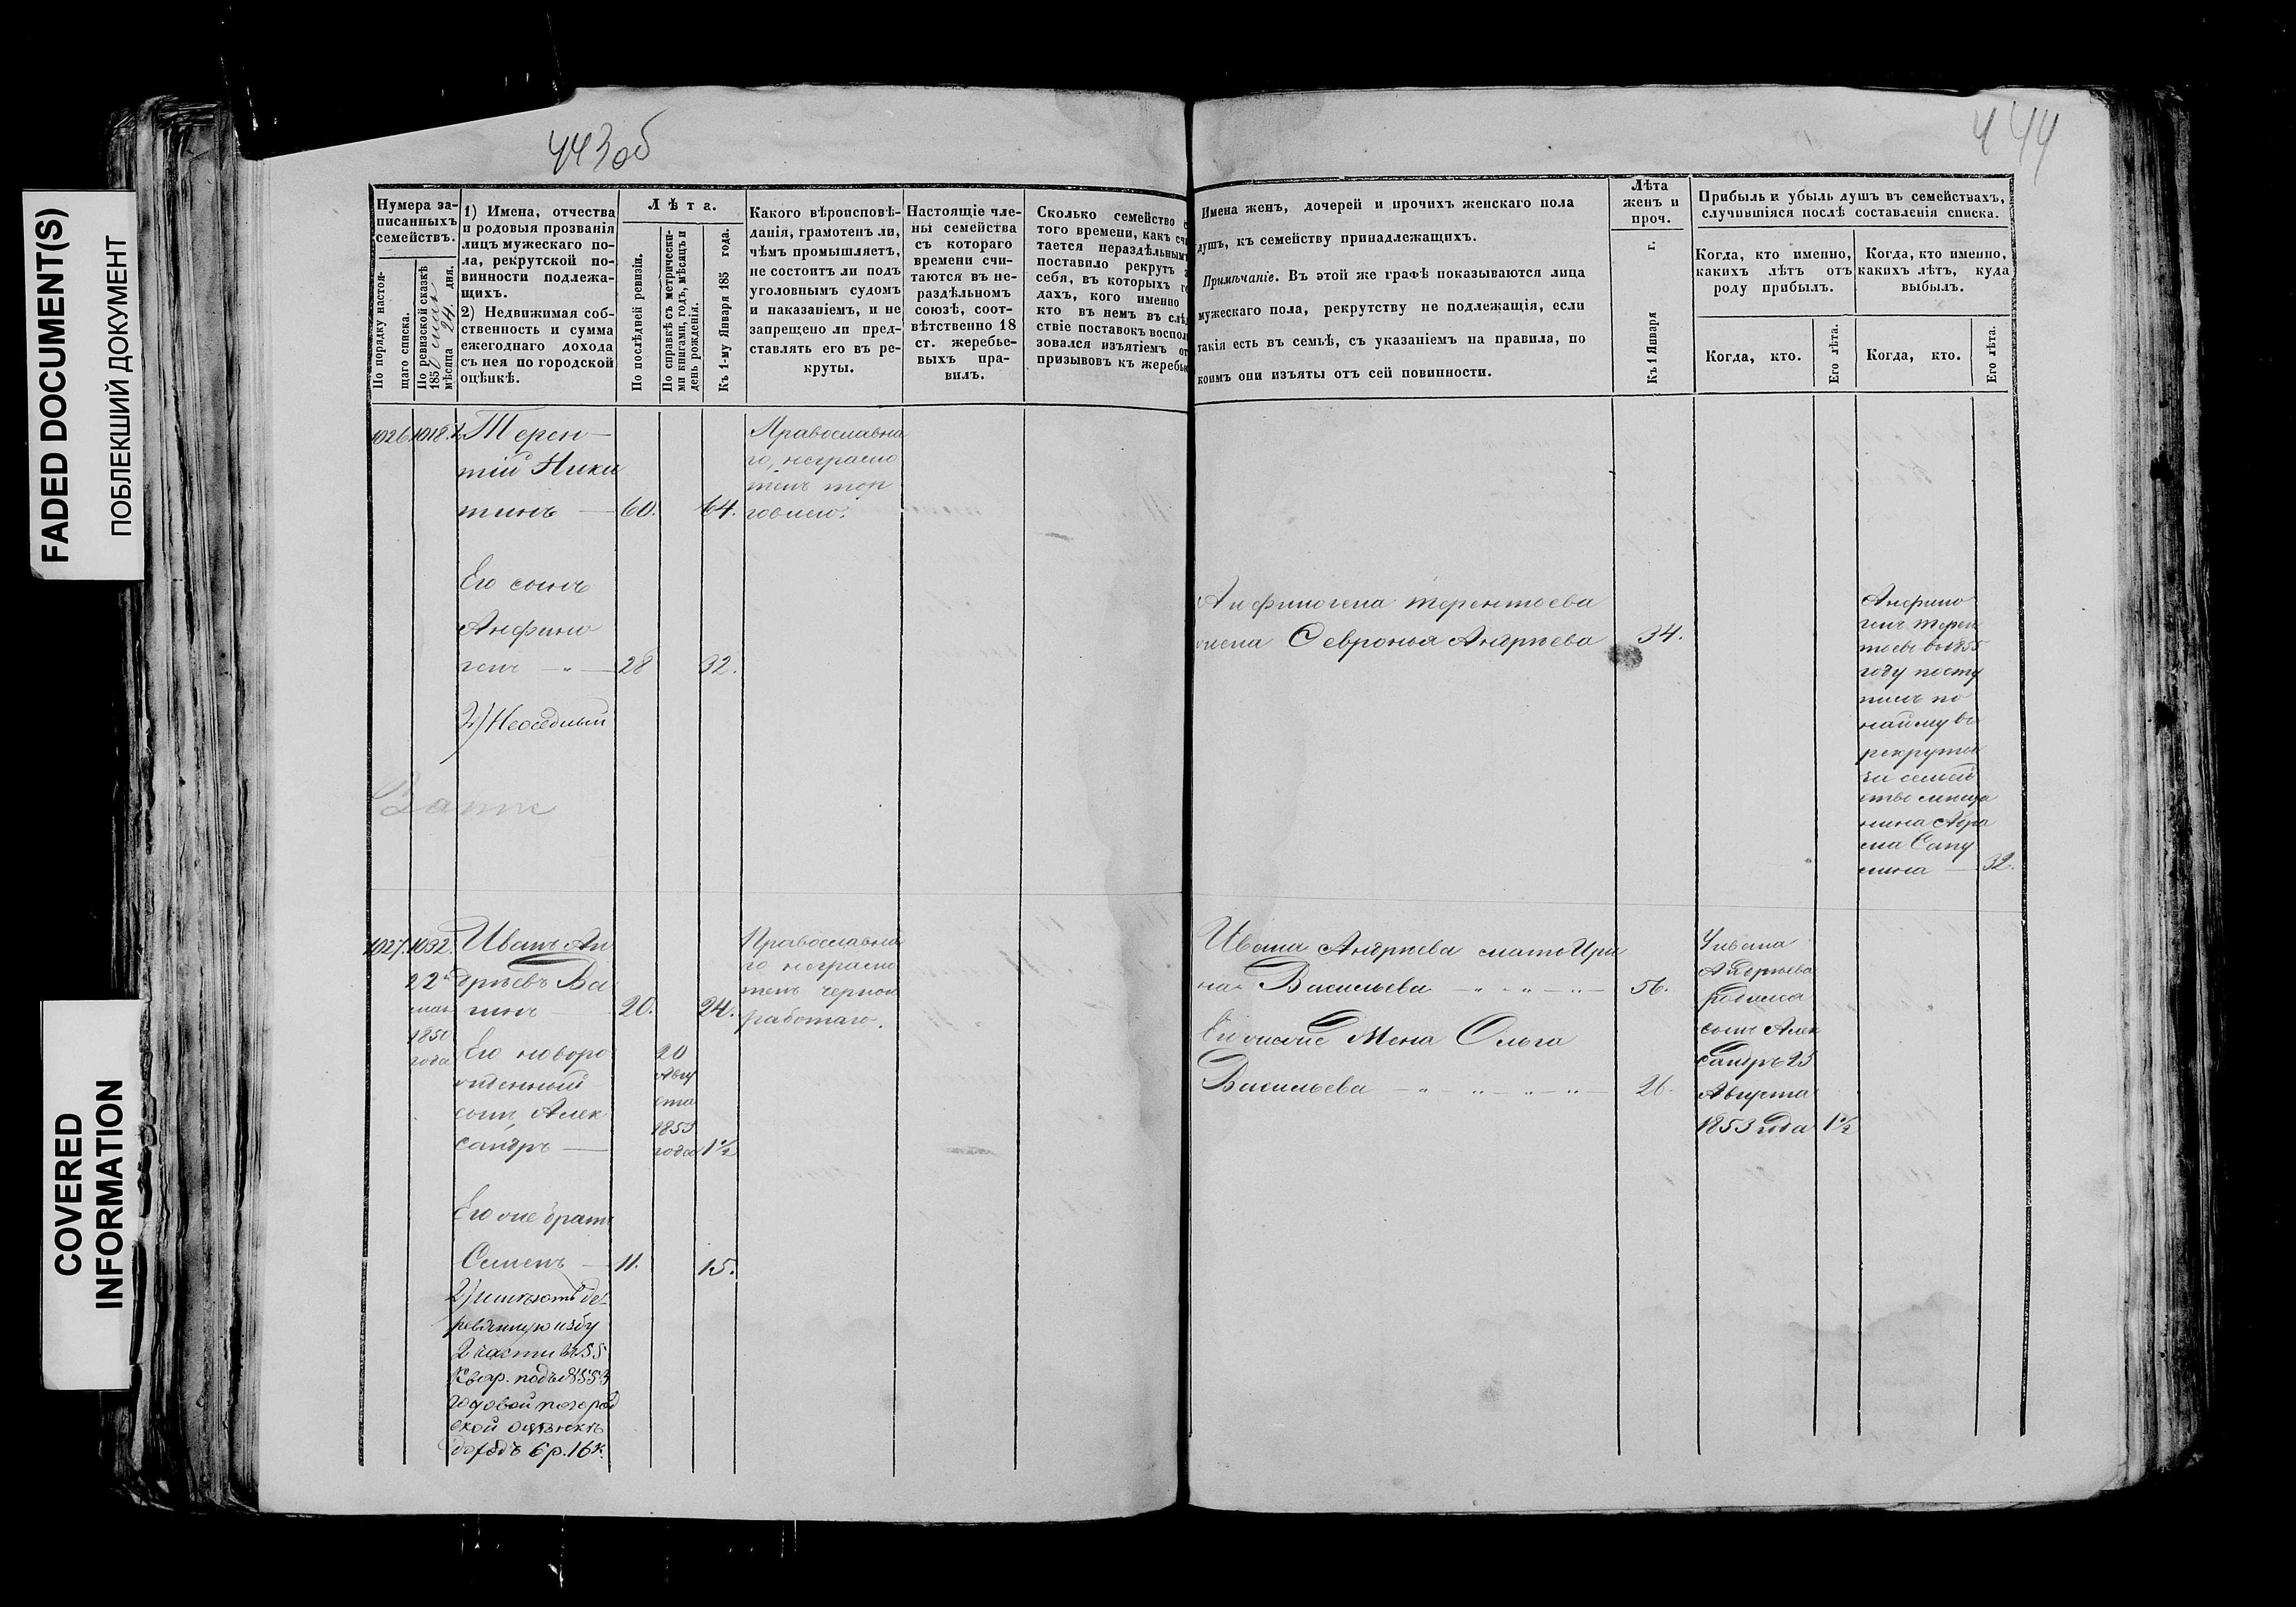 FADED DOCUMENT(S)
ПОБЛЕКШИЙ ДОКУМЕНТ
COVERED
INFORMATION
443об
444
Нумера за-
писанныхъ
семействъ.
По порядку настоя-
щаго списка.
По ревизской сказкѣ
185 мая
мѣсяца 24. дня.
1) Имена, отчества
и родовыя прозванія
лицъ мужескаго по-
ла, рекрутской по-
винности подлежа-
щихъ.
2) Недвижимая соб-
ственность и сумма
ежегоднаго дохода
съ нея по городской
оцѣнкѣ.
Лѣта.
По послѣдней ревизіи.
По справкѣ съ метрически-
ми книгами, годъ, мѣсяцъ и
день рожденія.
Къ 1-му Января 185 года.
Какого вѣроисповѣ-
данія, грамотенъ ли,
чѣмъ промышляетъ,
не состоитъ ли подъ
уголовнымъ судомъ
и наказаніемъ, и не
запрещено ли пред-
ставлять его въ ре-
круты.
Настоящіе чле-
ны семейства
съ котораго
времени счи-
таются въ не-
раздѣльномъ
союзѣ, соот-
вѣтственно 18
ст. жеребье-
выхъ пра-
вилъ.
Сколько семейство
того времени, какъ
тается нераздѣльнымъ
поставило рекрутъ
себя, въ которыхъ
дахъ, кого именно
кто въ немъ въ
ствіе поставокъ
зовался изъятіемъ
призывовъ къ
Имена женъ, дочерей и прочихъ женскаго пола
душъ, къ семейству принадлежащихъ.
Примѣчаніе. Въ этой же графѣ показываются лица
мужескаго пола, рекрутству не подлежащія, если
такія есть въ семьѣ, съ указаніемъ на правила, по
коимъ они изъяты отъ сей повинности.
Лѣта
женъ и
проч.
Къ 1 Января г.
Прибыль и убыль душъ въ семействахъ,
случившіяся послѣ составленія списка.
Когда, кто именно,
какихъ лѣтъ отъ
роду прибылъ.
Когда, кто.
Его лѣта.
Когда, кто именно,
какихъ лѣтъ, куда
выбылъ.
Когда, кто.
Его лѣта.
1026. 1018. 1. Терен-
тій Ники
тинъ — 60. 64.
Православна
го, неграмо
тенъ тор
говлею.
Его сынъ
Анфино
генъ — 28 32.
2) Неоседлый
Анфиногена Терентьева
жена Февронья Андреева 34.
Анфино
генъ Терен
тьевъ въ 1855
году посту
пилъ по
найму въ
рекруты
за семей
ство меща
нина Абра
ма Сапу
32.
1027. 1032. Иванъ Ан
22 дреевъ Ва
мая гинъ 20. 24.
1850
года
Православна
го неграмо
тенъ черной
работаю.
Его новоро
жденный
сынъ Алек
сандръ —
20
Авгу
ста
1853
года 1½
Его же братъ
Семенъ — 11. 15.
2) имѣютъ де-
ревянную избу
2 части въ 55
годовой по город
ской оцѣнкѣ
доходъ 6 р. 16 к.
Ивана Андреева мать Ири
на Васильева 56.
Его же Жена Ольга
Васильева 26.
У Ивана
Андреева
родился
сынъ Алек
сандръ 25
Августа
1853 года 1½